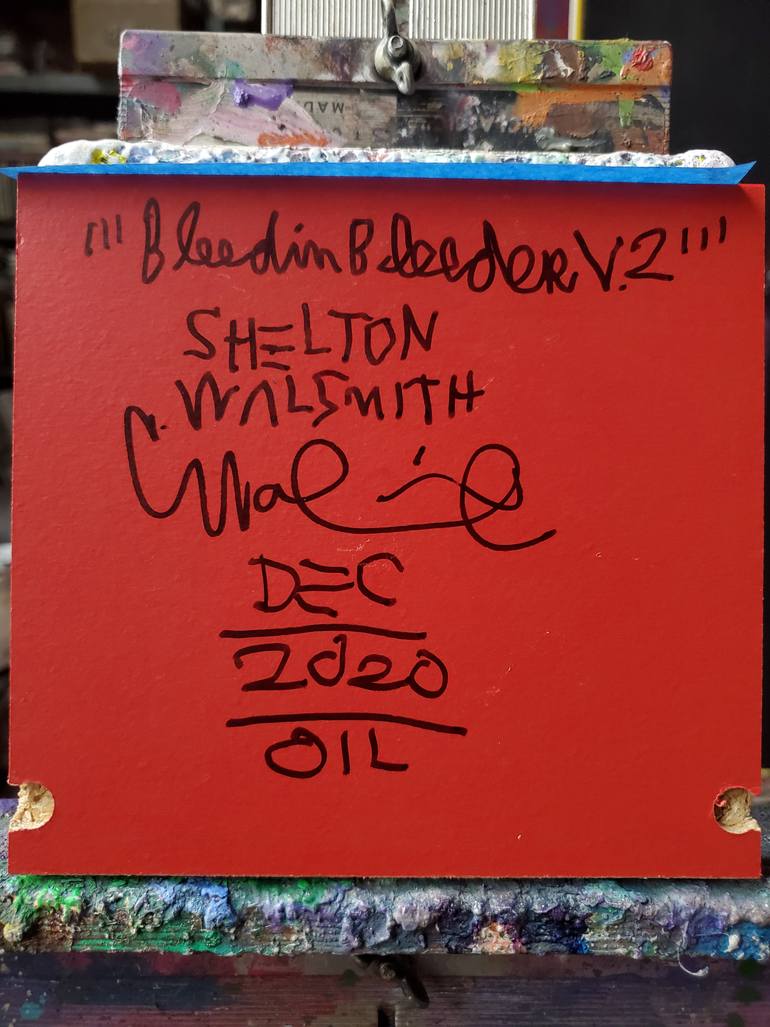 "'BleedinBleederV.2"'
SHELTON
WALSMITH
DEC
2020
OIL